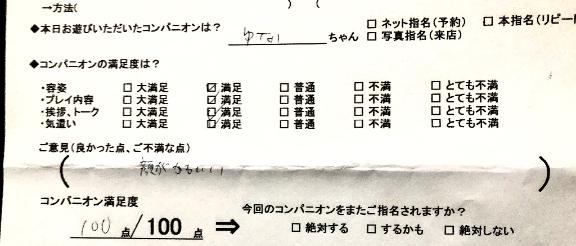 →方法( ) (
◆本日お遊びいただいたコンパニオンは? ちゃん □ ネット指名(予約) □ 本指名(リピー
□ 写真指名(来店)
◆コンパニオンの満足度は?
・容姿 □ 大満足 ☑ 満足 □ 普通 □ 不満 □ とても不満
・プレイ内容 □ 大満足 ☑ 満足 □ 普通 □ 不満 □ とても不満
・挨拶、トーク □ 大満足 ☑ 満足 □ 普通 □ 不満 □ とても不満
・気遣い □ 大満足 ☑ 満足 □ 普通 □ 不満 □ とても不満
ご意見(良かった点、ご不満な点)
( 顔がかわいい )
コンパニオン満足度
100 点/100 点 ⇒ 今回のコンパニオンをまたご指名されますか?
□ 絶対する □ するかも □ 絶対しない